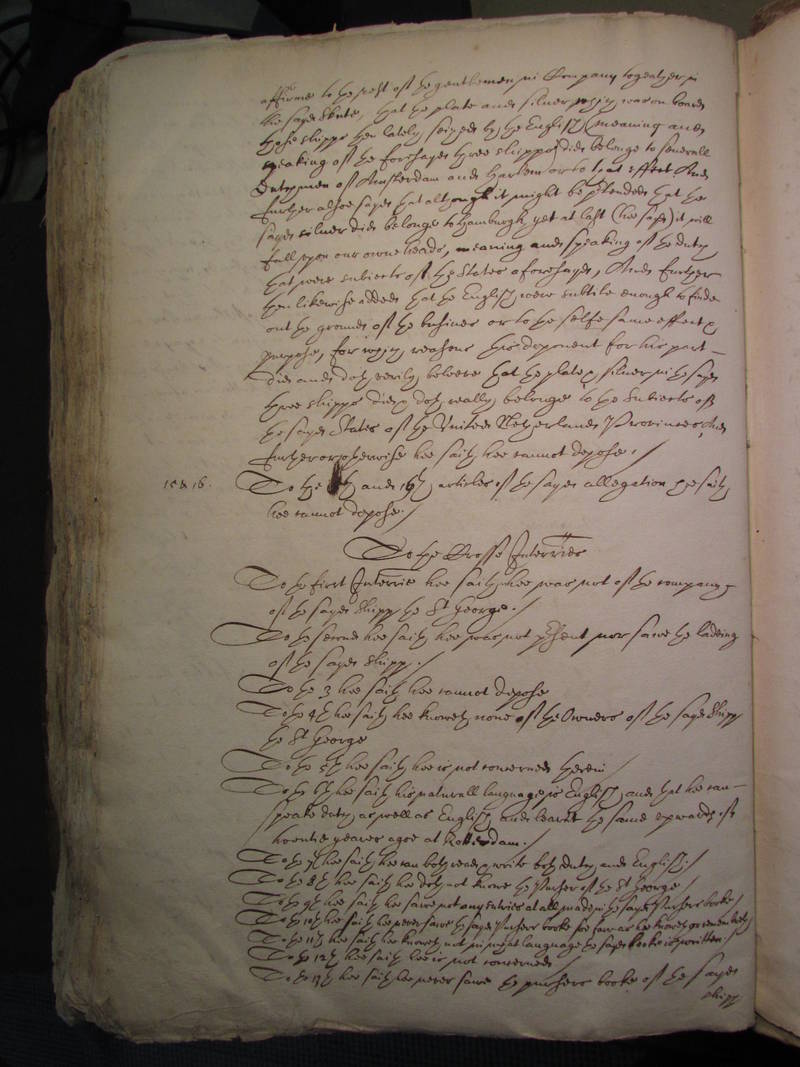 affirme to the rest of the gentlemen in Company together in
the sayd Skute, that the plate and silver which was on board
those shipps then lately seized by the English (meaning and
speaking of the foresayd three shipps) did belonge to severall
Dutchmen of Amsterdam and Harlem or to that effect And
further alsoe sayd that although it might be pretended that the
sayd silver did belonge to Hamburgh yet at last (hee sayd) it will
fall upon our owne heads, meaning and speaking of the dutch
that were subiects of the States aforesayd, And further
then likewise added that the English were subtile enough to finde
out the ground of the busines or to the selfe same effect &
purpose, for which reasons this deponent for his part
did and doth verily beleeve that the plate & silver in the sayd
three shipps did & doth really belonge to the Subiects of
the sayd States of the United Netherlands Provinces And
further or otherwise hee saith hee cannot depose./
15 & 16. To the 15th and 16th articles of the sayd allegation hee saith
hee cannot depose./
To the Crosse Interries
To the first Interrie hee saith hee was not of the company
of the sayd shipp the St George./
To the second hee saith hee was not present nor sawe the ladeing
of the sayd shipp./
To the 3 hee saith hee cannot depose
To the 4th hee saith hee knoweth none of the Owners of the sayd shipp
the St George
To the 5th hee saith hee is not concerned therein
To the 6th hee saith his naturall language is English and that hee can
speake dutch as well as English and learnt the same upwards of
twentie yeares agoe at Rotterdam./
To the 7th hee saith hee can both read & write both dutch and English./
To the 8th hee saith hee doth not knowe the Purser of the St George
To the 9th hee saith hee sawe not any entries at all made in the sayd Pursers booke
To the 10th hee saith hee never sawe the sayd Pursers booke soe farr as hee knoweth or remembreth
To the 11th hee saith hee knoweth not in what language the sayd booke is written./
To the 12th hee saith hee is not concerned
To the 13th hee saith hee never sawe the pursers booke of the sayd
shipp